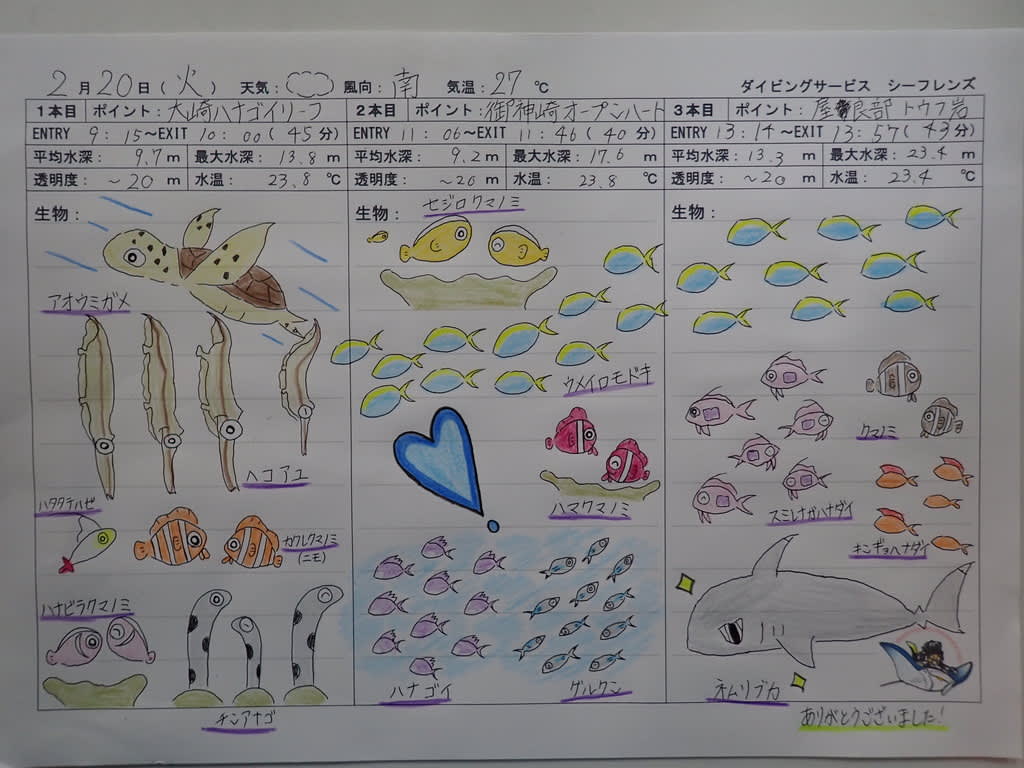 2月20日(火) 天気: 風向:南 気温:27℃ ダイビングサービス シーフレンズ
1本目 ポイント:大崎ハナゴイリーフ
ENTRY 9:15〜EXIT 10:00(45分)
平均水深: 9.7m 最大水深: 13.8m
透明度: 〜20m 水温: 23.8℃
生物:
アオウミガメ
ヘコアユ
ハタタテハゼ
カクレクマノミ
(ニモ)
ハナビラクマノミ
チンアナゴ
2本目 ポイント:御神崎オープンハート
ENTRY 11:06〜EXIT 11:46(40分)
平均水深: 9.2m 最大水深: 17.6m
透明度: 〜20m 水温: 23.8℃
生物:
セジロクマノミ
ウメイロモドキ
ハマクマノミ
ハナゴイ
グルクン
3本目 ポイント:屋良部トウフ岩
ENTRY 13:14〜EXIT 13:57(43分)
平均水深: 13.3m 最大水深: 23.4m
透明度: 〜20m 水温: 23.4℃
生物:
クマノミ
スミレナガハナダイ
キンギョハナダイ
ネムリブカ
ありがとうございました!